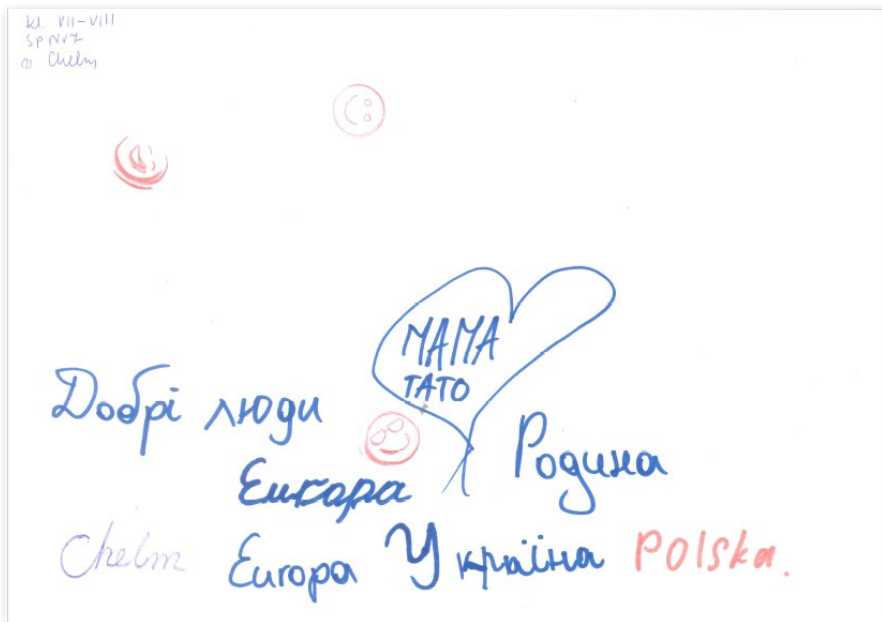 kl. VII-VIII
SP Nr 7
w Chełm
МАМА
ТАТО
Добрі люди
Родина
Europa
Chełm Europa Україна POLska.